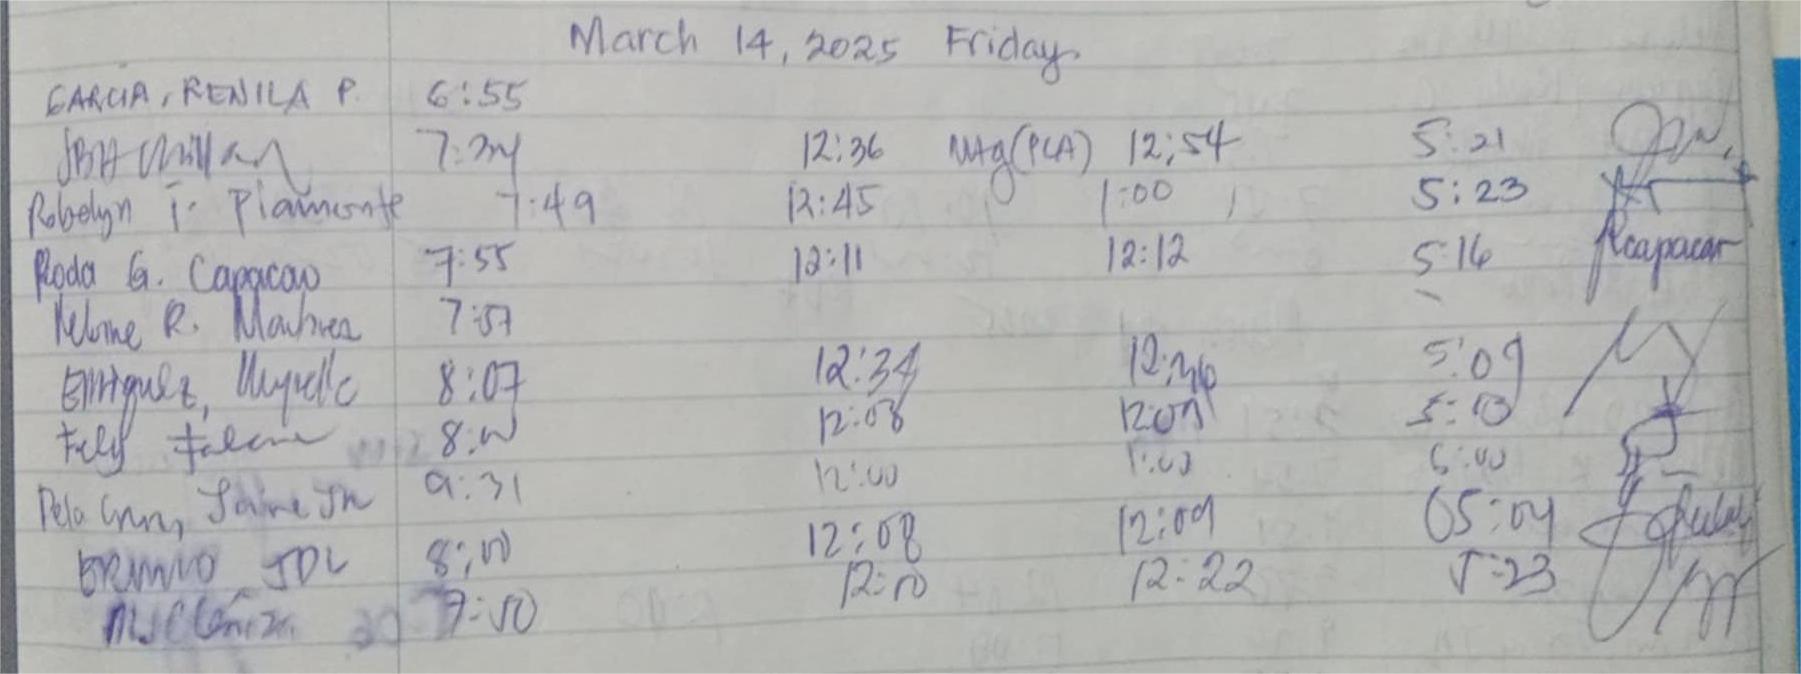 March 14, 2025 Friday
GARCIA, RENILA P. 6:55
12:36 (PCA) 12:54 5:21
Robelyn T. Piamonte 7:49 12:45 1:00 5:23
Roda G. Capacao 7:55 12:11 12:12 5:16 Rcapacao
R. Martinez 7:57
Enriquez, 8:07 12:34 12:36 5:09
Fely 8:00 12:08 12:09 5:03
Dela Cruz, Jaime Jr 9:31 12:00 1:00 6:00
JDL 8:00 12:08 12:09 05:04
7:50 12:10 12:22 5:23